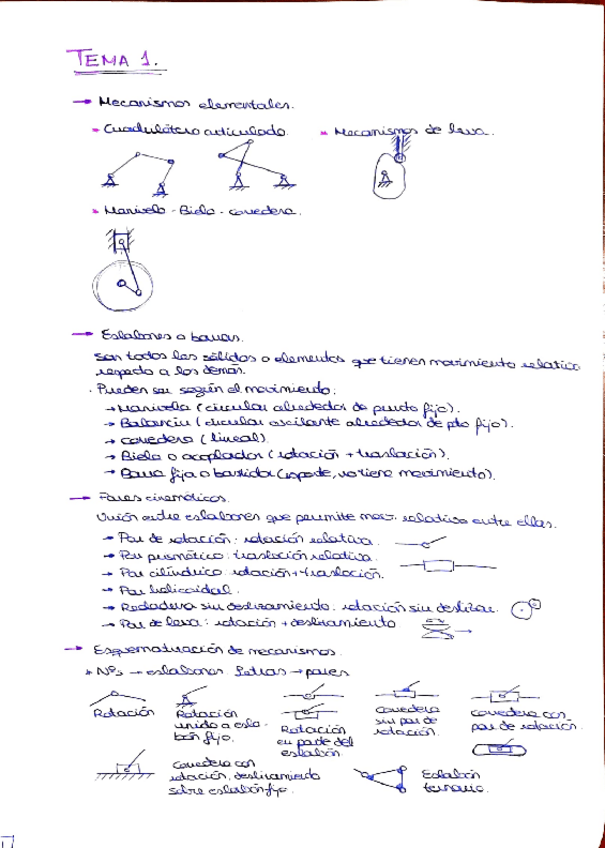 TEMA 1.
→ Mecanismos elementales.
▸ Cuadrilátero articulado. ▸ Mecanismos de leva.
▸ Manivela - Biela - corredera.
→ Eslabones o barras.
Son todos los sólidos o elementos que tienen movimiento relativo
respecto a los demás.
· Pueden ser según el movimiento:
→ Manivela (circular alrededor de punto fijo).
→ Balancín (circular oscilante alrededor de pto fijo).
→ corredera (lineal).
→ Biela o acoplador (rotación + traslación).
→ Barra fija o bastidor (soporte, no tiene movimiento).
→ Pares cinemáticos.
Unión entre eslabones que permite mov. relativo entre ellas.
→ Par de rotación: rotación relativa.
→ Par prismático: traslación relativa.
→ Par cilíndrico: rotación + traslación.
→ Par helicoidal.
→ Rodadura sin deslizamiento: rotación sin deslizar.
→ Par de leva: rotación + deslizamiento
→ Esquematización de mecanismos.
* Nºs → eslabones Letras → pares
Rotación
Rotación
unido a esla-
bón fijo.
Rotación
en parte del
eslabón.
Corredera
sin par de
rotación.
Corredera con
par de rotación.
Corredera con
rotación, deslizamiento
sobre eslabón fijo.
Eslabón
ternario.